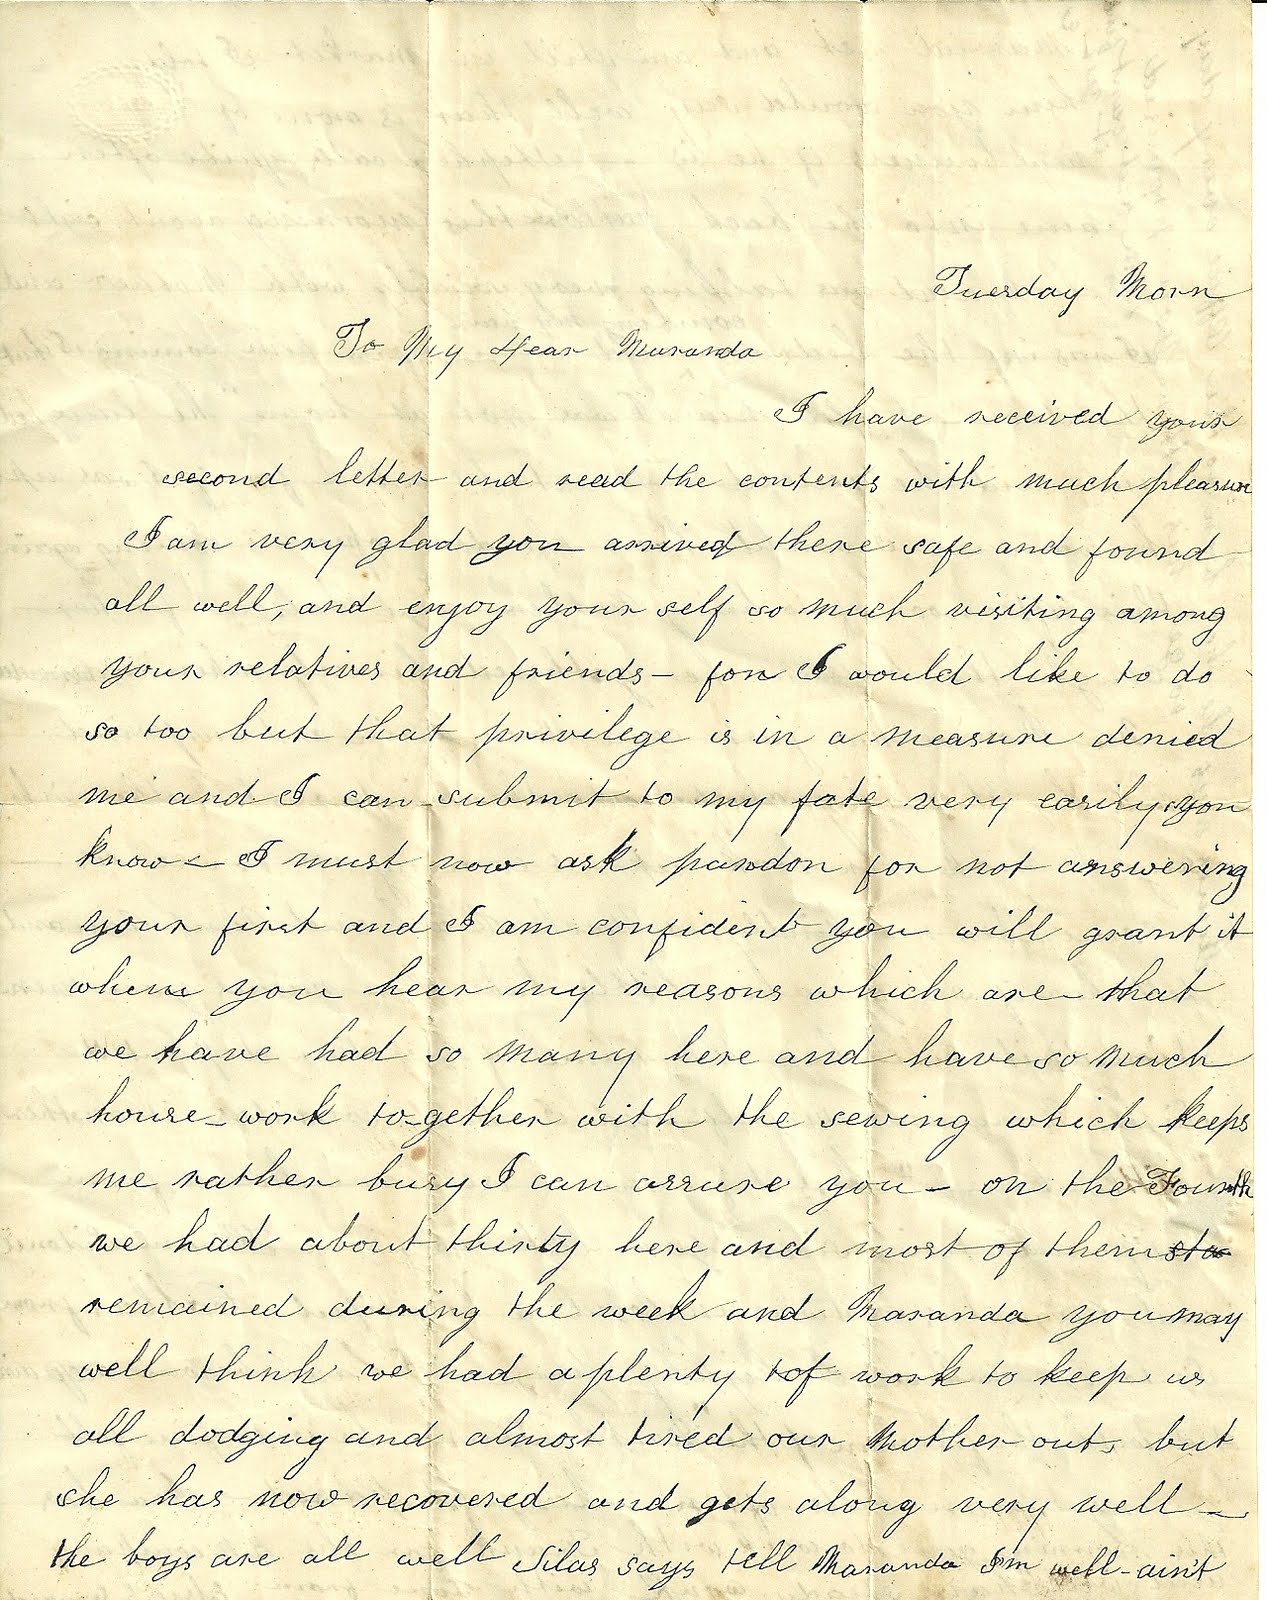 Tuesday Morn
To My Dear Maranda
I have received your
second letter and read the contents with much pleasure
I am very glad you arrived there safe and found
all well, and enjoy your self so much visiting among
your relatives and friends – for I would like to do
so too but that privilege is in a measure denied
me and I can submit to my fate very easily you
know – I must now ask pardon for not answering
your first and I am confident you will grant it
when you hear my reasons which are – that
we have had so many here and have so much
house-work to-gether with the sewing which keeps
me rather busy I can assure you – on the Fourth
we had about thirty here and most of them sta
remained during the week and Maranda you may
well think we had a plenty of work to keep us
all dodging and almost tired our Mother out, but
she has now recovered and gets along very well –
the boys are all well Silas says tell Maranda I'm well – ain't